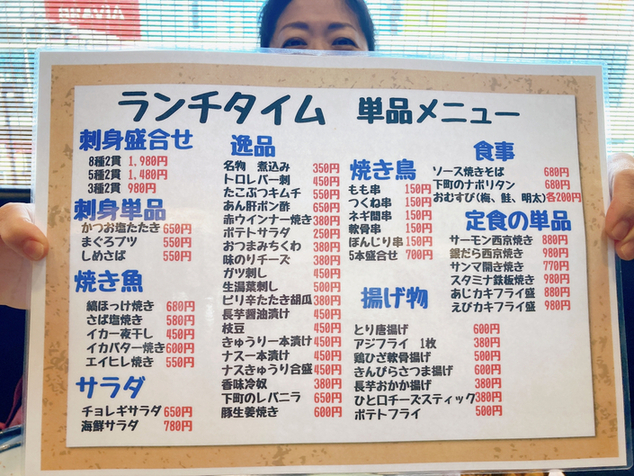 ランチタイム 単品メニュー
刺身盛合せ
8種2貫 1,980円
5種2貫 1,480円
3種2貫 980円
刺身単品
かつお塩たたき 650円
まぐろブツ 550円
しめさば 550円
焼き魚
縞ほっけ焼き 680円
さば塩焼き 580円
イカ一夜干し 450円
イカバター焼き 600円
エイヒレ焼き 550円
サラダ
チョレギサラダ 650円
海鮮サラダ 780円
逸品
名物 煮込み 350円
トロレバー刺 450円
たこぶつキムチ 550円
あん肝ポン酢 650円
赤ウインナー焼き 380円
ポテトサラダ 250円
おつまみちくわ 380円
味のりチーズ 380円
ガツ刺し 450円
生湯葉刺し 500円
ピリ辛たたき胡瓜 380円
長芋醤油漬け 450円
枝豆 450円
きゅうり一本漬け 450円
ナス一本漬け 450円
ナスきゅうり合盛 450円
香味冷奴 380円
下町のレバニラ 650円
豚生姜焼き 600円
焼き鳥
もも串 150円
つくね串 150円
ネギ間串 150円
軟骨串 150円
ぼんじり串 150円
5本盛合せ 700円
揚げ物
とり唐揚げ 600円
アジフライ 1枚 380円
鶏ひざ軟骨揚げ 500円
きんぴらさつま揚げ 600円
長芋おかか揚げ 380円
ひと口チーズスティック 380円
ポテトフライ 500円
食事
ソース焼きそば 680円
下町のナポリタン 680円
おむすび(梅、鮭、明太) 各200円
定食の単品
サーモン西京焼き 880円
銀だら西京焼き 980円
サンマ開き焼き 770円
スタミナ鉄板焼き 980円
あじカキフライ盛 880円
えびカキフライ盛 980円